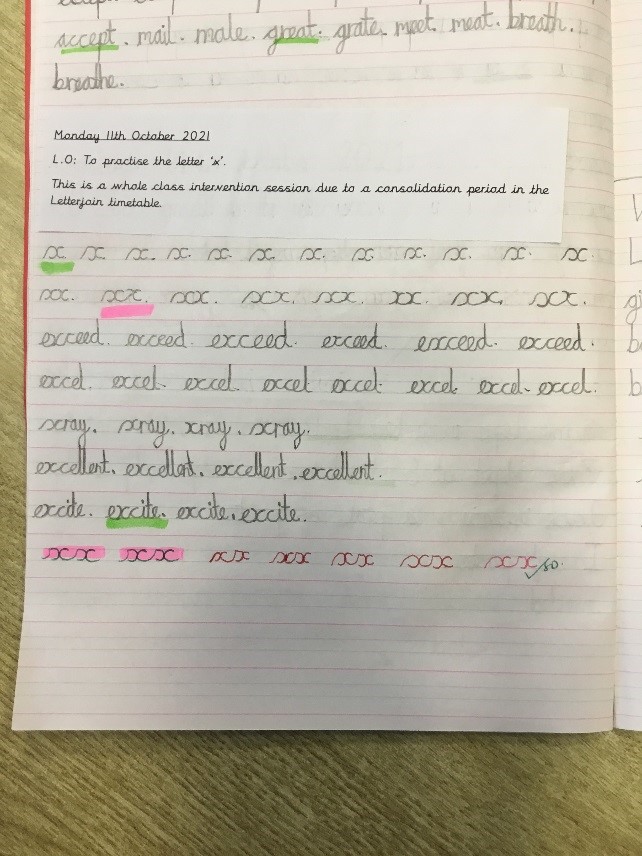 accept. mail. male. great. grate. meet. meat. breath.
breathe.
Monday 11th October 2021
L.O: To practise the letter 'x'.
This is a whole class intervention session due to a consolidation period in the
Letterjoin timetable.
x x x. x. x. x. x. x. x. x. x. x.
xx. xx. xx. xx. xx. xx. xx. xx.
exceed. exceed. exceed. exceed. exceed. exceed.
excel. excel. excel. excel excel. excel. excel. excel.
xray. xray. xray. xray.
excellent. excellent. excellent. excellent.
excite. excite. excite. excite.
xx xx xx xx xx xx xx